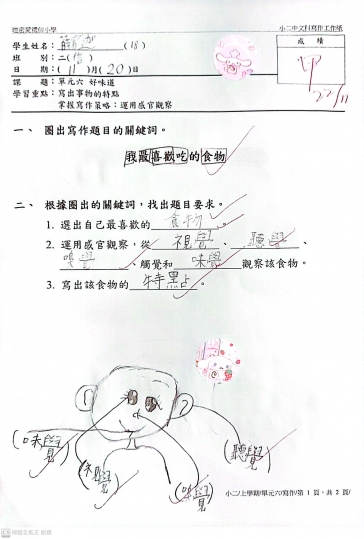 小二中文科寫作工作紙
學生姓名： (18)
成績
班別：二( )
日期：(11)月(20)日
課題：單元六 好味道
學習重點：寫出事物的特點
掌握寫作策略：運用感官觀察
22/11
一、 圈出寫作題目的關鍵詞。
我最喜歡吃的食物
二、 根據圈出的關鍵詞，找出題目要求。
1. 選出自己最喜歡的 食物 。
2. 運用感官觀察，從 視覺 、 聽覺 、
嗅覺 、觸覺和 味覺 觀察該食物。
3. 寫出該食物的 特點 。
(味覺)
(視覺)
(味覺)
(聽覺)
小二/上學期/單元六/寫作/第 1 頁，共 2 頁/